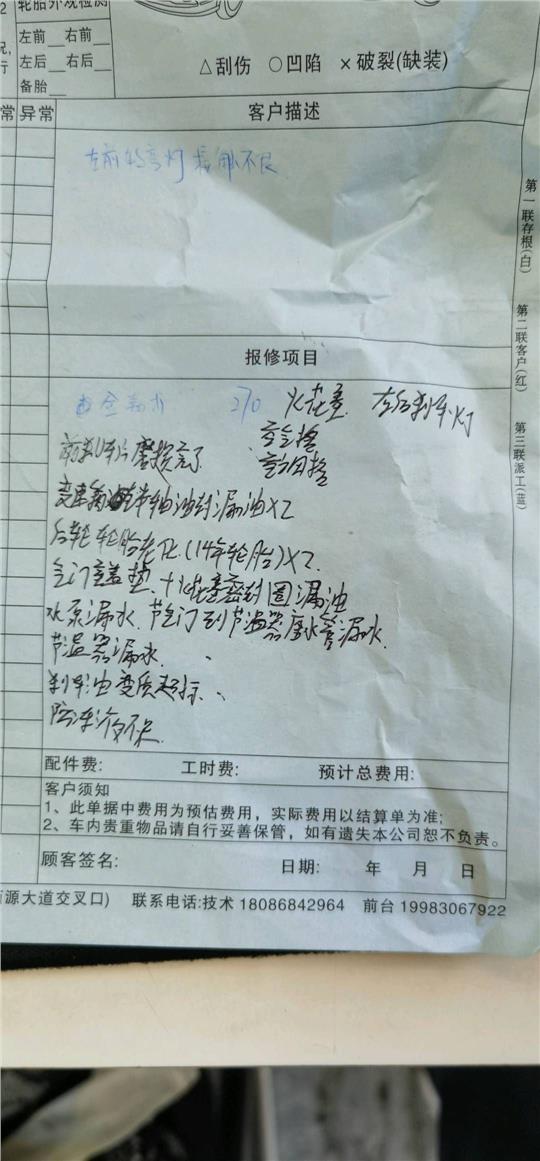 轮胎外观检测
左前__右前__
左后__右后__
备胎__
△刮伤 ○凹陷 ×破裂(缺装)
常 异常 客户描述
左前转弯灯 接触不良
第一联存根(白)
第二联客户(红)
第三联派工(蓝)
报修项目
270 火花塞 左后刹车灯
空气格
空调格
前刹车片磨损完了
变速箱 半轴油封漏油X2
后轮轮胎老化(14年轮胎)X2
气门室盖垫 火花塞密封圈漏油
水泵漏水 节气门到节温器 水管漏水
节温器漏水
刹车油变质超标
防冻液不足
配件费: 工时费: 预计总费用:
客户须知
1、此单据中费用为预估费用，实际费用以结算单为准;
2、车内贵重物品请自行妥善保管，如有遗失本公司恕不负责。
顾客签名: 日期: 年 月 日
源大道交叉口) 联系电话:技术 18086842964 前台 19983067922